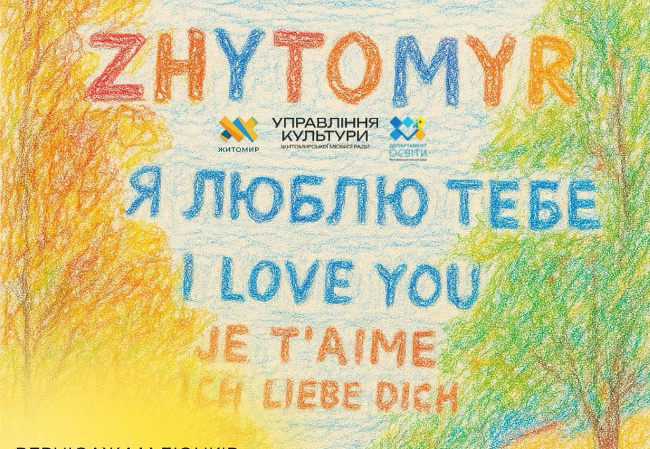 ZHYTOMYR
ЖИТОМИР
УПРАВЛІННЯ
КУЛЬТУРИ
ЖИТОМИРСЬКОЇ МІСЬКОЇ РАДИ
ДЕПАРТАМЕНТ
ОСВІТИ
Я ЛЮБЛЮ ТЕБЕ
I LOVE YOU
JE T'AIME
ICH LIEBE DICH